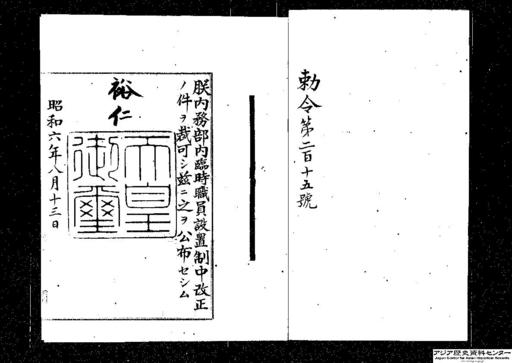 勅令第二百十五號
朕内務部内臨時職員設置制中改正
ノ件ヲ裁可シ茲ニ之ヲ公布セシム
裕仁
天皇御璽
昭和六年八月十三日
アジア歴史資料センター
Japan Center for Asian Historical Records